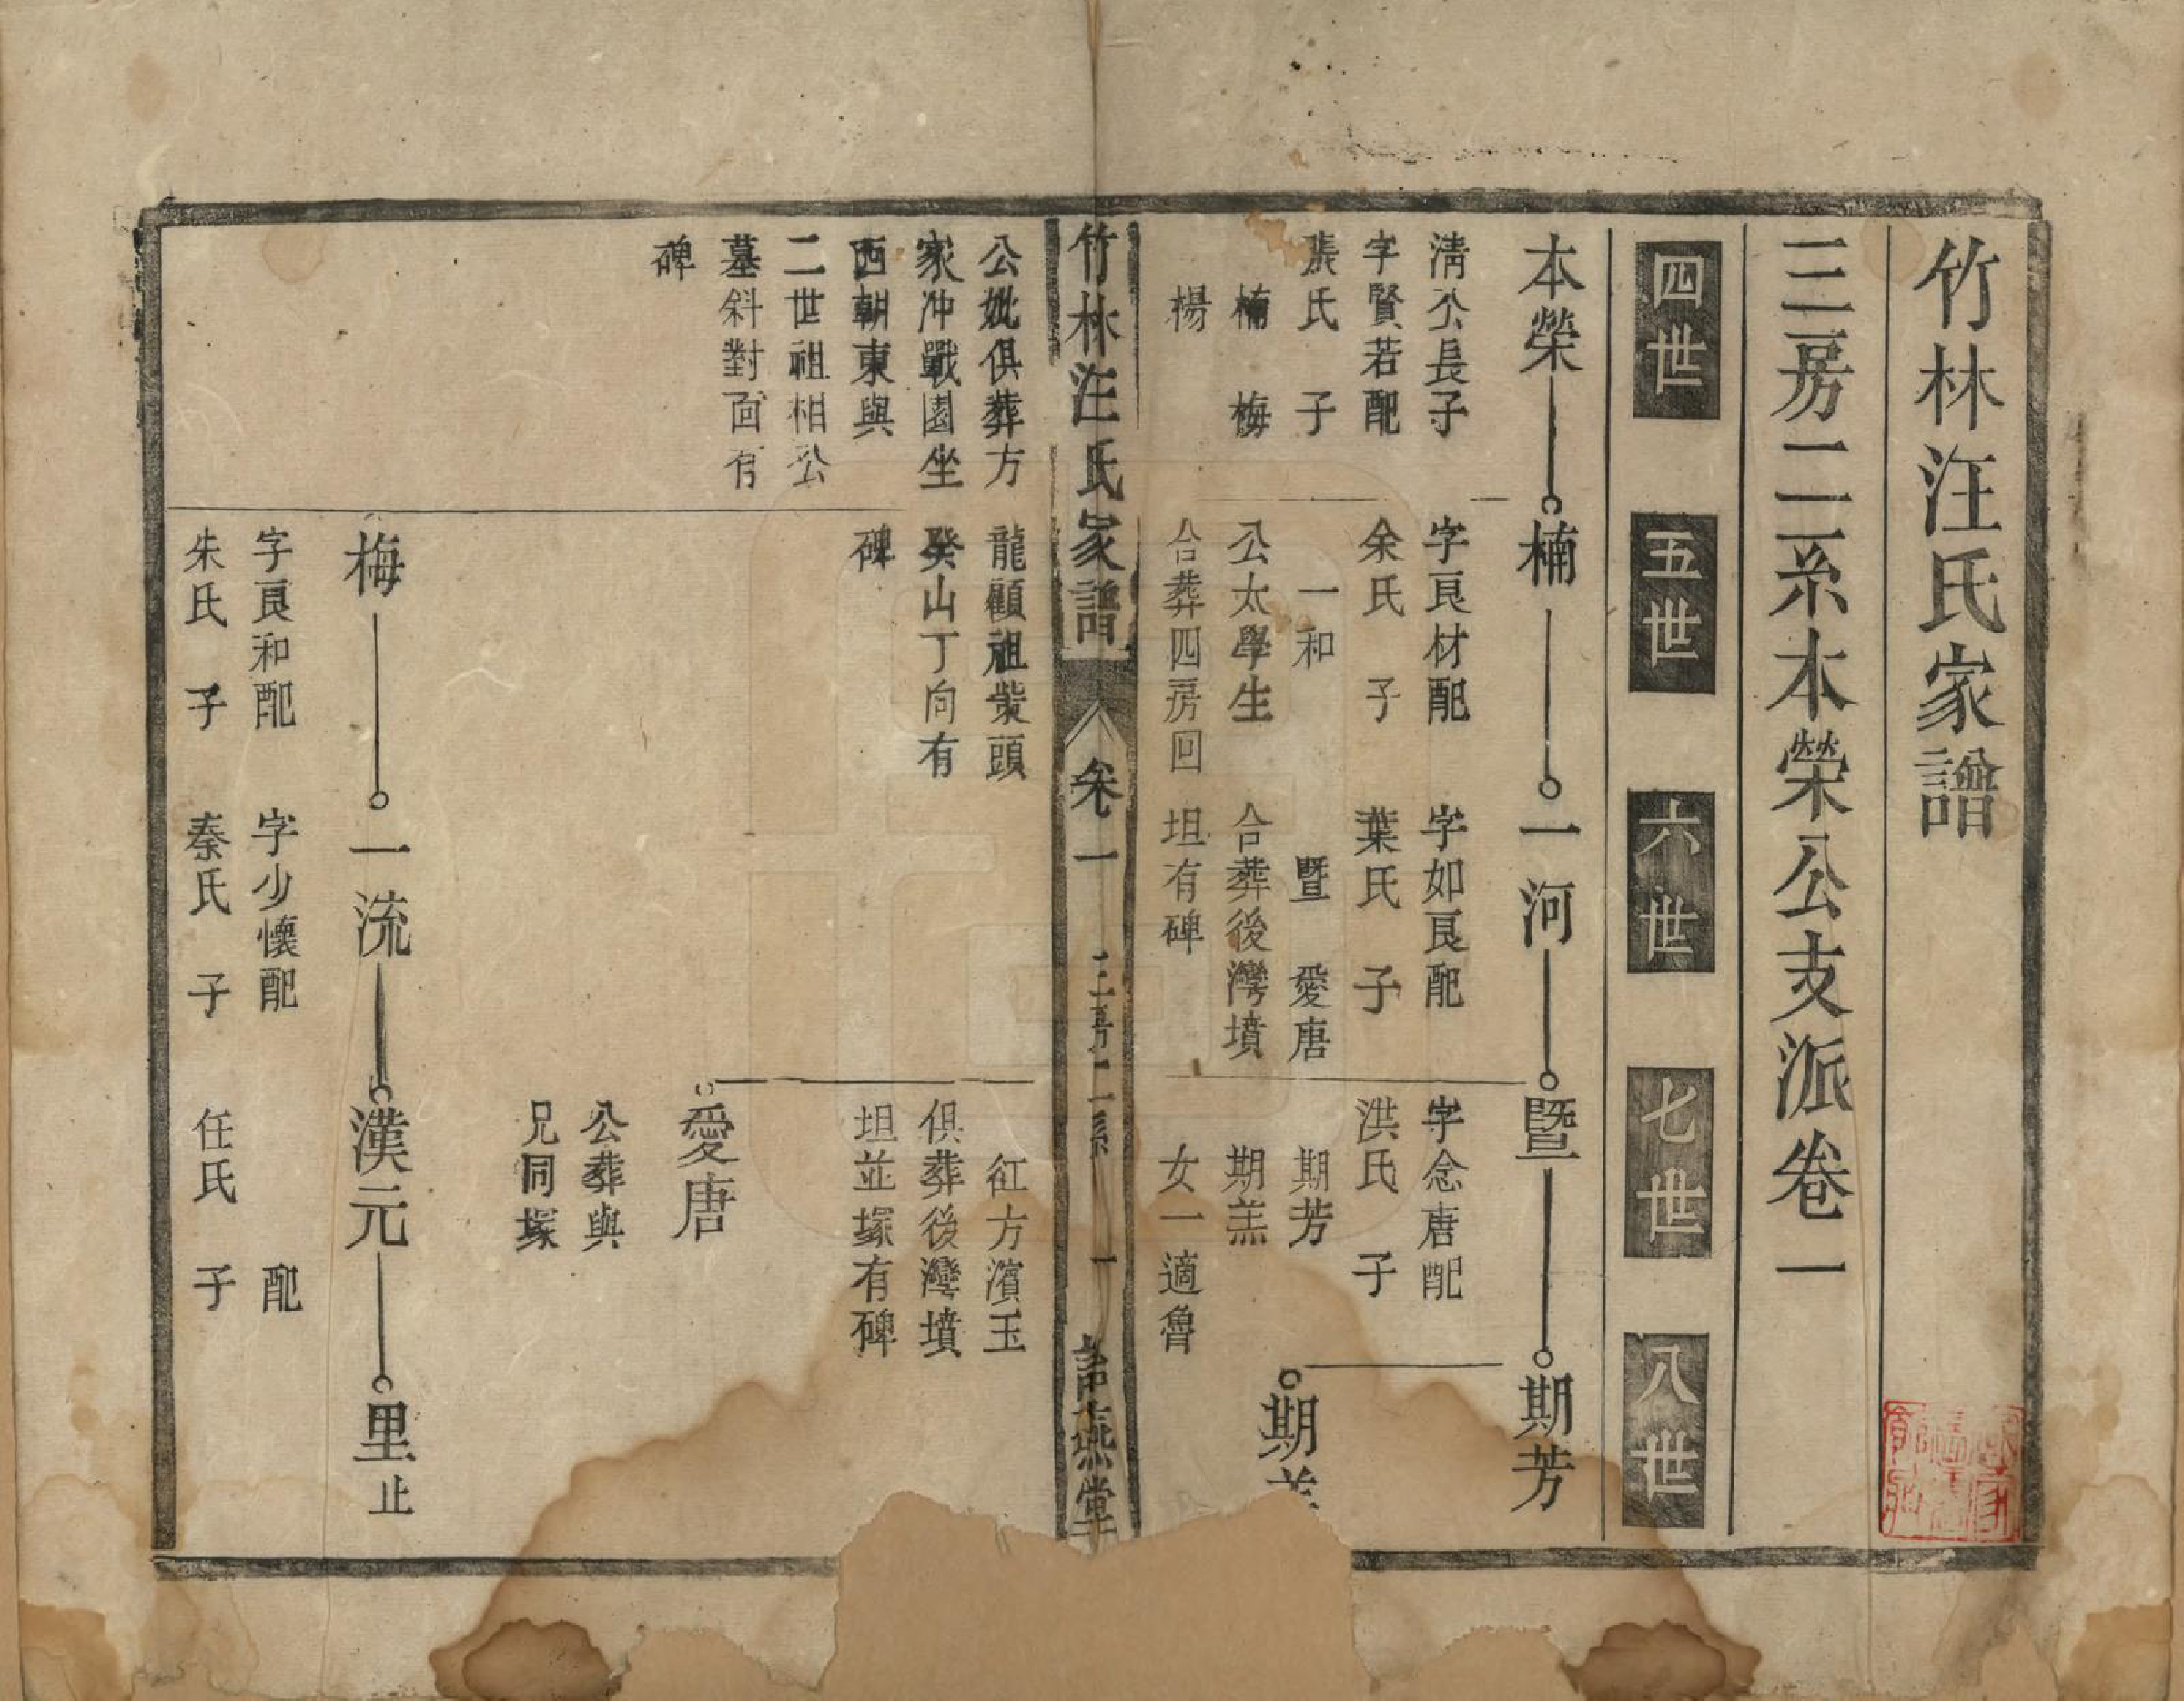 竹林汪氏家譜
三房二系本榮公支派卷一
四世
五世
六世
七世
八世
本榮
楠
一河
暨
期芳
清公長子
字賢若配
張氏 子
楠 梅
楊
字良材配
余氏 子
一和
公太學生
合葬四房回
字如良配
葉氏 子
暨 愛唐
合葬後灣墳
坦有碑
字念唐配
洪氏 子
期芳
期羔
女一適魯
期羔
竹林汪氏家譜
卷一
三房二系
一
詒燕堂
公妣俱葬方
家冲戰園坐
西朝東與
二世祖相公
墓斜對面有
碑
龍顧祖柴頭
癸山丁向有
碑
紅方濱玉
俱葬後灣墳
坦並塚有碑
愛唐
公葬與
兄同塚
梅
一流
漢元
里止
字良和配
朱氏 子
字少懷配
秦氏 子
配
任氏 子